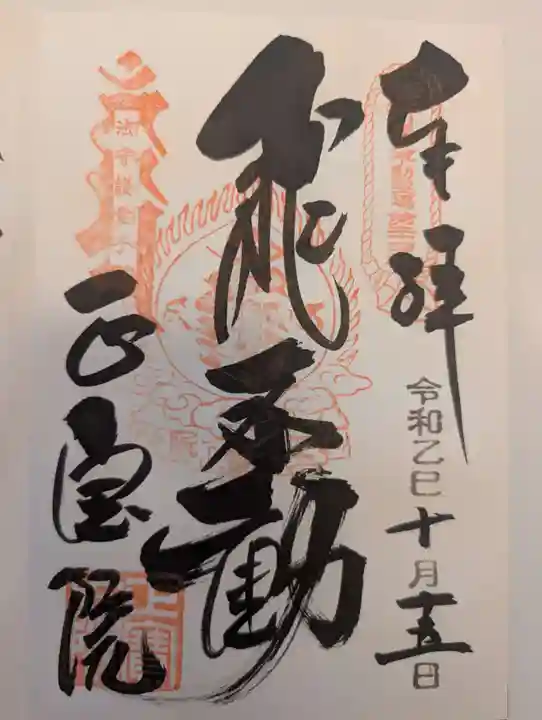 奉拝
令和乙巳十月十五日
飛不動
正宝院